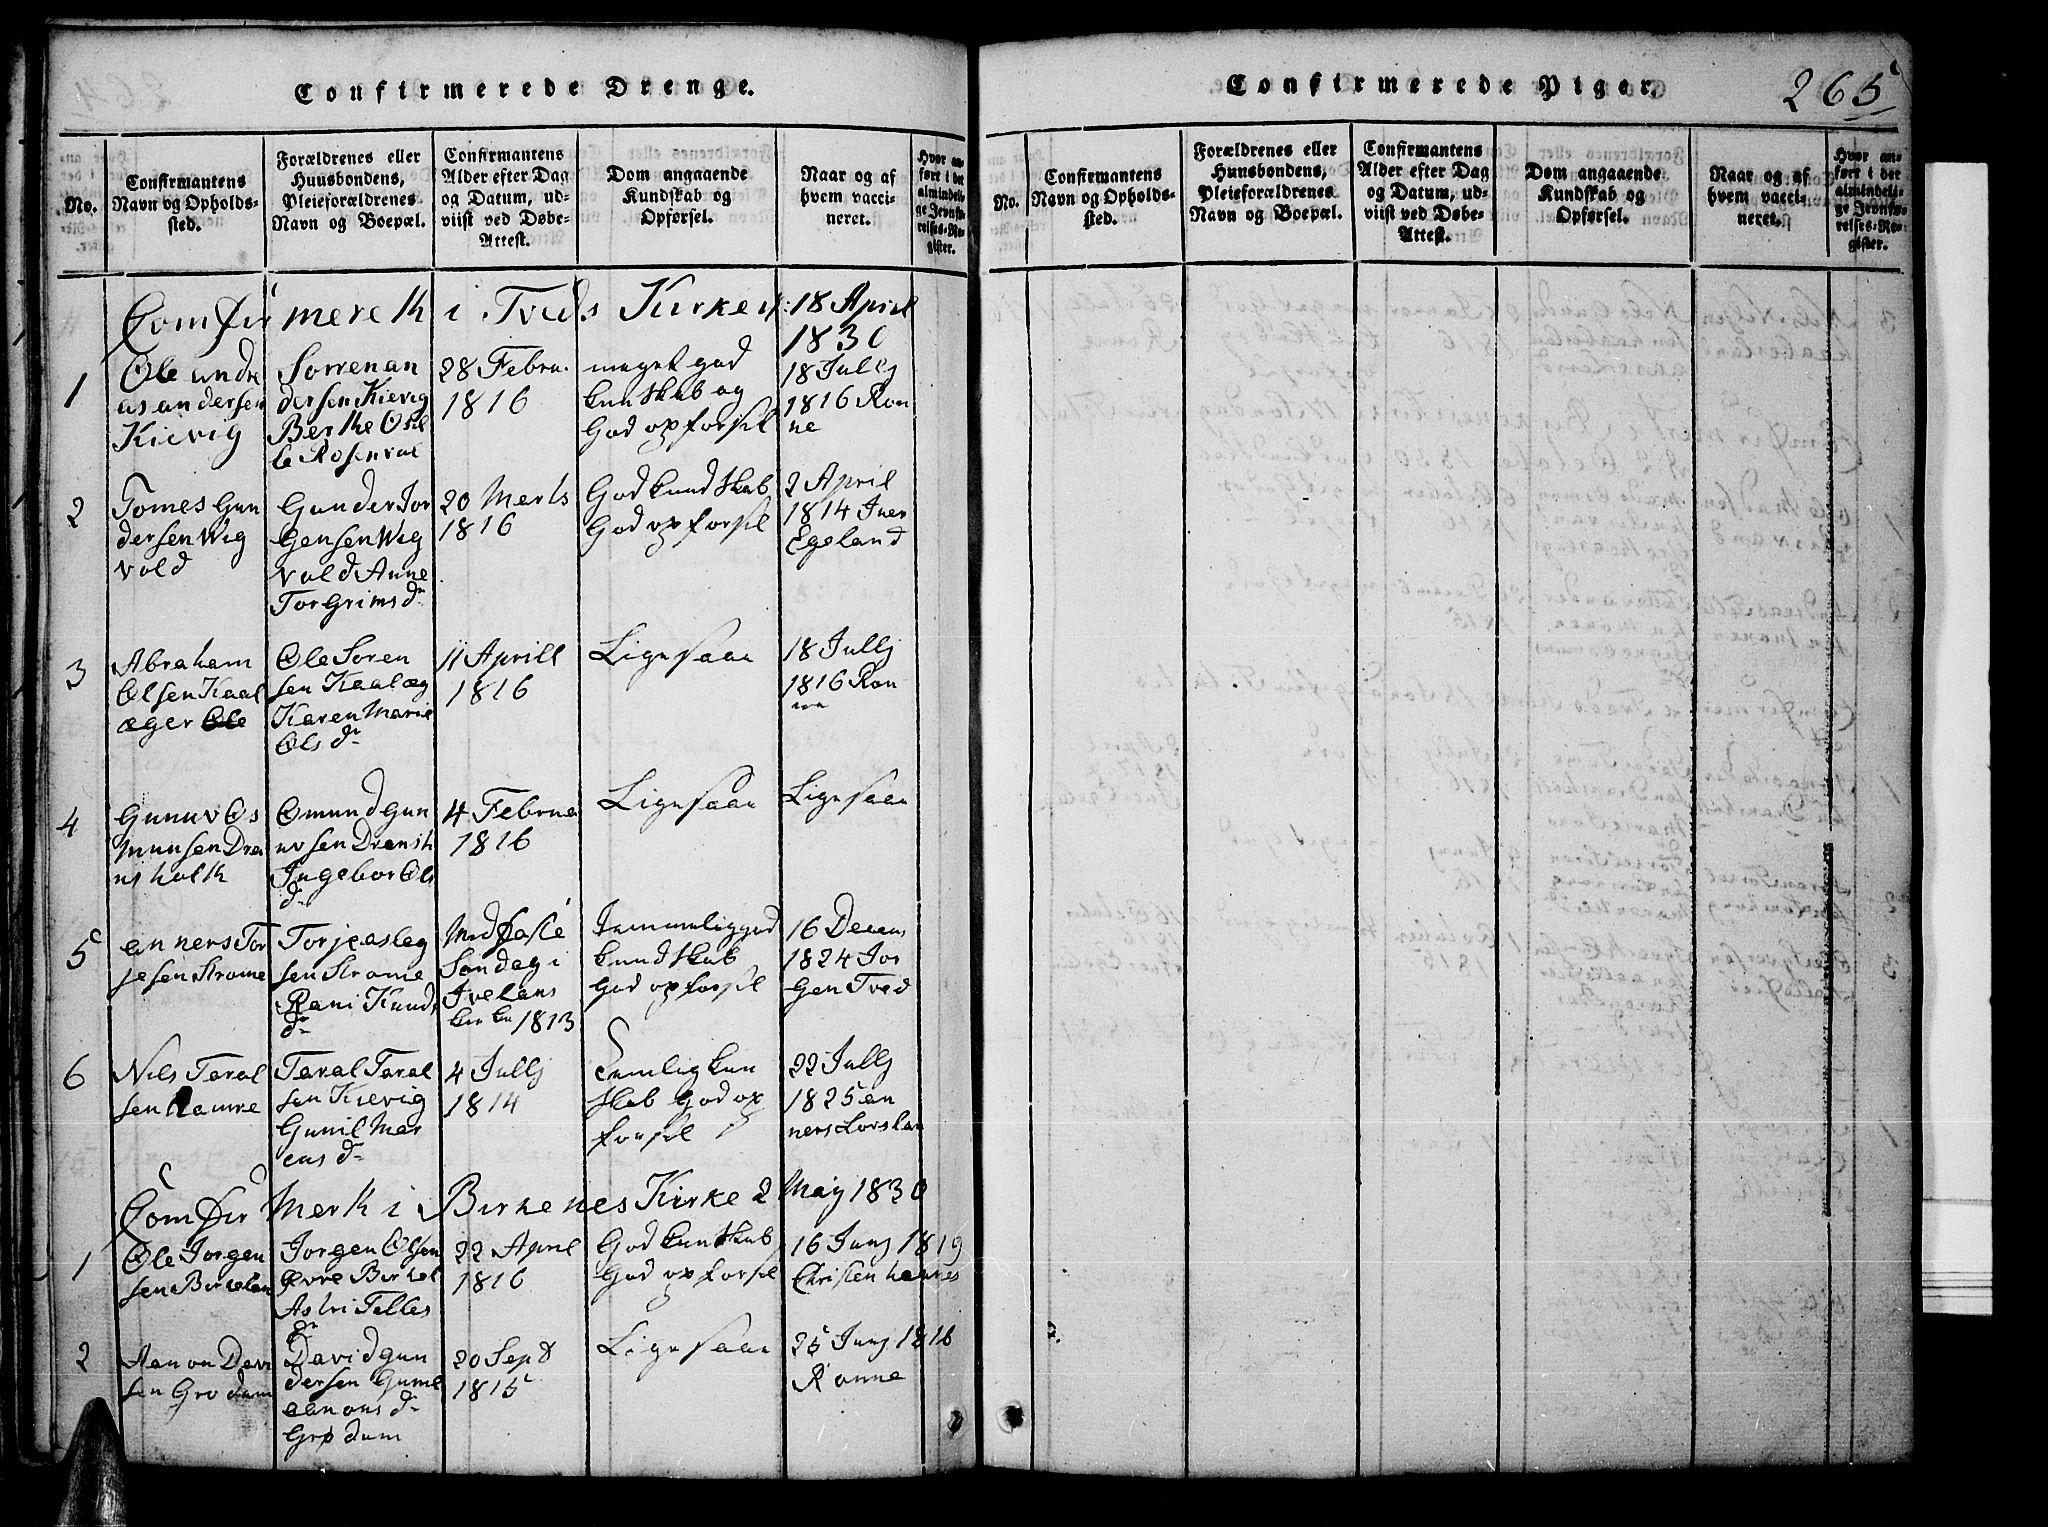 Confirmerede Drenge.
No.
Confirmantens
Navn og Opholds-
sted.
Forældrenes eller
Huusbondens,
Pleieforældrenes
Navn og Boepæl.
Confirmantens
Alder efter Dag
og Datum, ud-
viist ved Døbe-
Attest.
Dom angaaende
Kundskab og
Opførsel.
Naar og af
hvem vacci-
neret.
Hvor an-
ført i det
almindeli-
ge Jevnfø-
relses-Re-
gister.
Comfirmereth i Treds Kirke d: 18 April
1830
1
Ole andre
as andersen
Kievig
Sorren an
dersen Kievig
Berthe Osil
le Rosenvol
28 Febru.
1816
meget god
kunskab og
God opforsel
18 Jullj
1816 Ron
ne
2
Tomes Gun
dersen Wig
vold
Gunder Jor
Gensen Wig
vold Anne
Torgrims dr
20 Merts
1816
God kundskab
God opforsel
2 April
1814 Iver
Egeland
3
Abraham
Olsen Kaal
æger Ole
Ole Soren
sen Kaalæg
Karen Marie
Ols dr
11 Aprill
1816
Ligesaae
18 Jullj
1816 Ron
ne
4
Gunuv Os
munsen Dren
ns holth
Omund Gun
uvsen Drensh
Ingebor Ols
dr
4 Februa
1816
Ligesaae
Ligesaae
5
anners Tor
jesen Strome
Torje asleg
sen Strome
Rani Knuds
dr
Midfaste
Sondag i
Ivelans
kirke 1813
Temmelig god
kundskab
God opforsel
16 Decem
1824 Jor
gen Tved
6
Nils Teral
sen Ramse
Teral Teral
sen Kievig
Gunil Mar
ens dr
4 Jullj
1814
Temlig kun
skab God op
forsel
22 Jullj
1825 an
ners Lorslan
Comfirmerth i Birkenes Kirke 2 May 1830
1
Ole Jorgen
sen Birkelan
Jorgen Olsen
øvre Birkel
Astri Telles
dr
22 April
1816
God kunskab
God opforsel
16 Junj 1819
Christen hannes
2
Aanon Davi
sen Grodum
David gun
dersen Gunil
aanons dr
Grodum
20 Sept
1815
Ligesaae
25 Junj 1816
Ronne
Confirmerede Piger.
265
No.
Confirmantens
Navn og Opholds-
sted.
Forældrenes eller
Huusbondens,
Pleieforældrenes
Navn og Boepæl.
Confirmantens
Alder efter Dag
og Datum, ud-
viist ved Døbe-
Attest.
Dom angaaende
Kundskab og
Opførsel.
Naar og af
hvem vacci-
neret.
Hvor an-
ført i det
almindeli-
ge Jevnfø-
relses-Re-
gister.